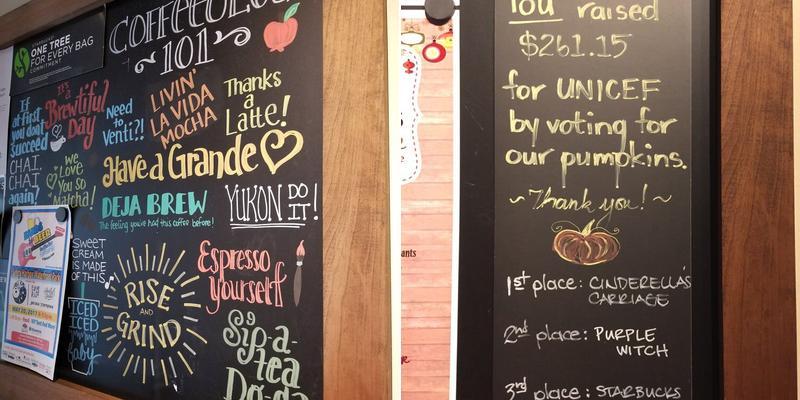 COFFEEOLOGY
101
STARBUCKS
ONE TREE
FOR EVERY BAG
COMMITMENT
If
at first
you don't
succeed
CHAI,
CHAI
again!
It's
a
Brewtiful
Day
We
Love
You so
Matcha!
Need
to
Venti?!
LIVIN'
LA VIDA
MOCHA
Thanks
a
Latte!
Have a Grande
DEJA BREW
The feeling you've had this coffee before!
YUKON DO
IT!
SWEET
CREAM
IS MADE
OF THIS
ICED
ICED
Baby
RISE
AND
GRIND
Espresso
yourself
Sip-a-
tea
Do-da
MAY 20, 2017
You raised
$261.15
for UNICEF
by voting for
our pumpkins.
~Thank you!~
1st place: CINDERELLA'S
CARRIAGE
2nd place: PURPLE
WITCH
3rd place: STARBUCKS